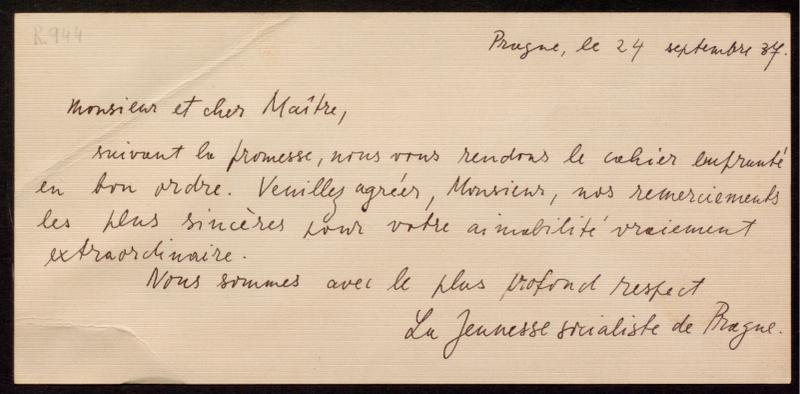 R.944
Prague, le 24 septembre 37.
Monsieur et cher Maître,
suivant la promesse, nous vous rendons le cahier emprunté
en bon ordre. Veuillez agréer, Monsieur, nos remerciements
les plus sincères pour votre aimabilité vraiement
extraordinaire.
Nous sommes avec le plus profond respect
La Jeunesse socialiste de Prague.